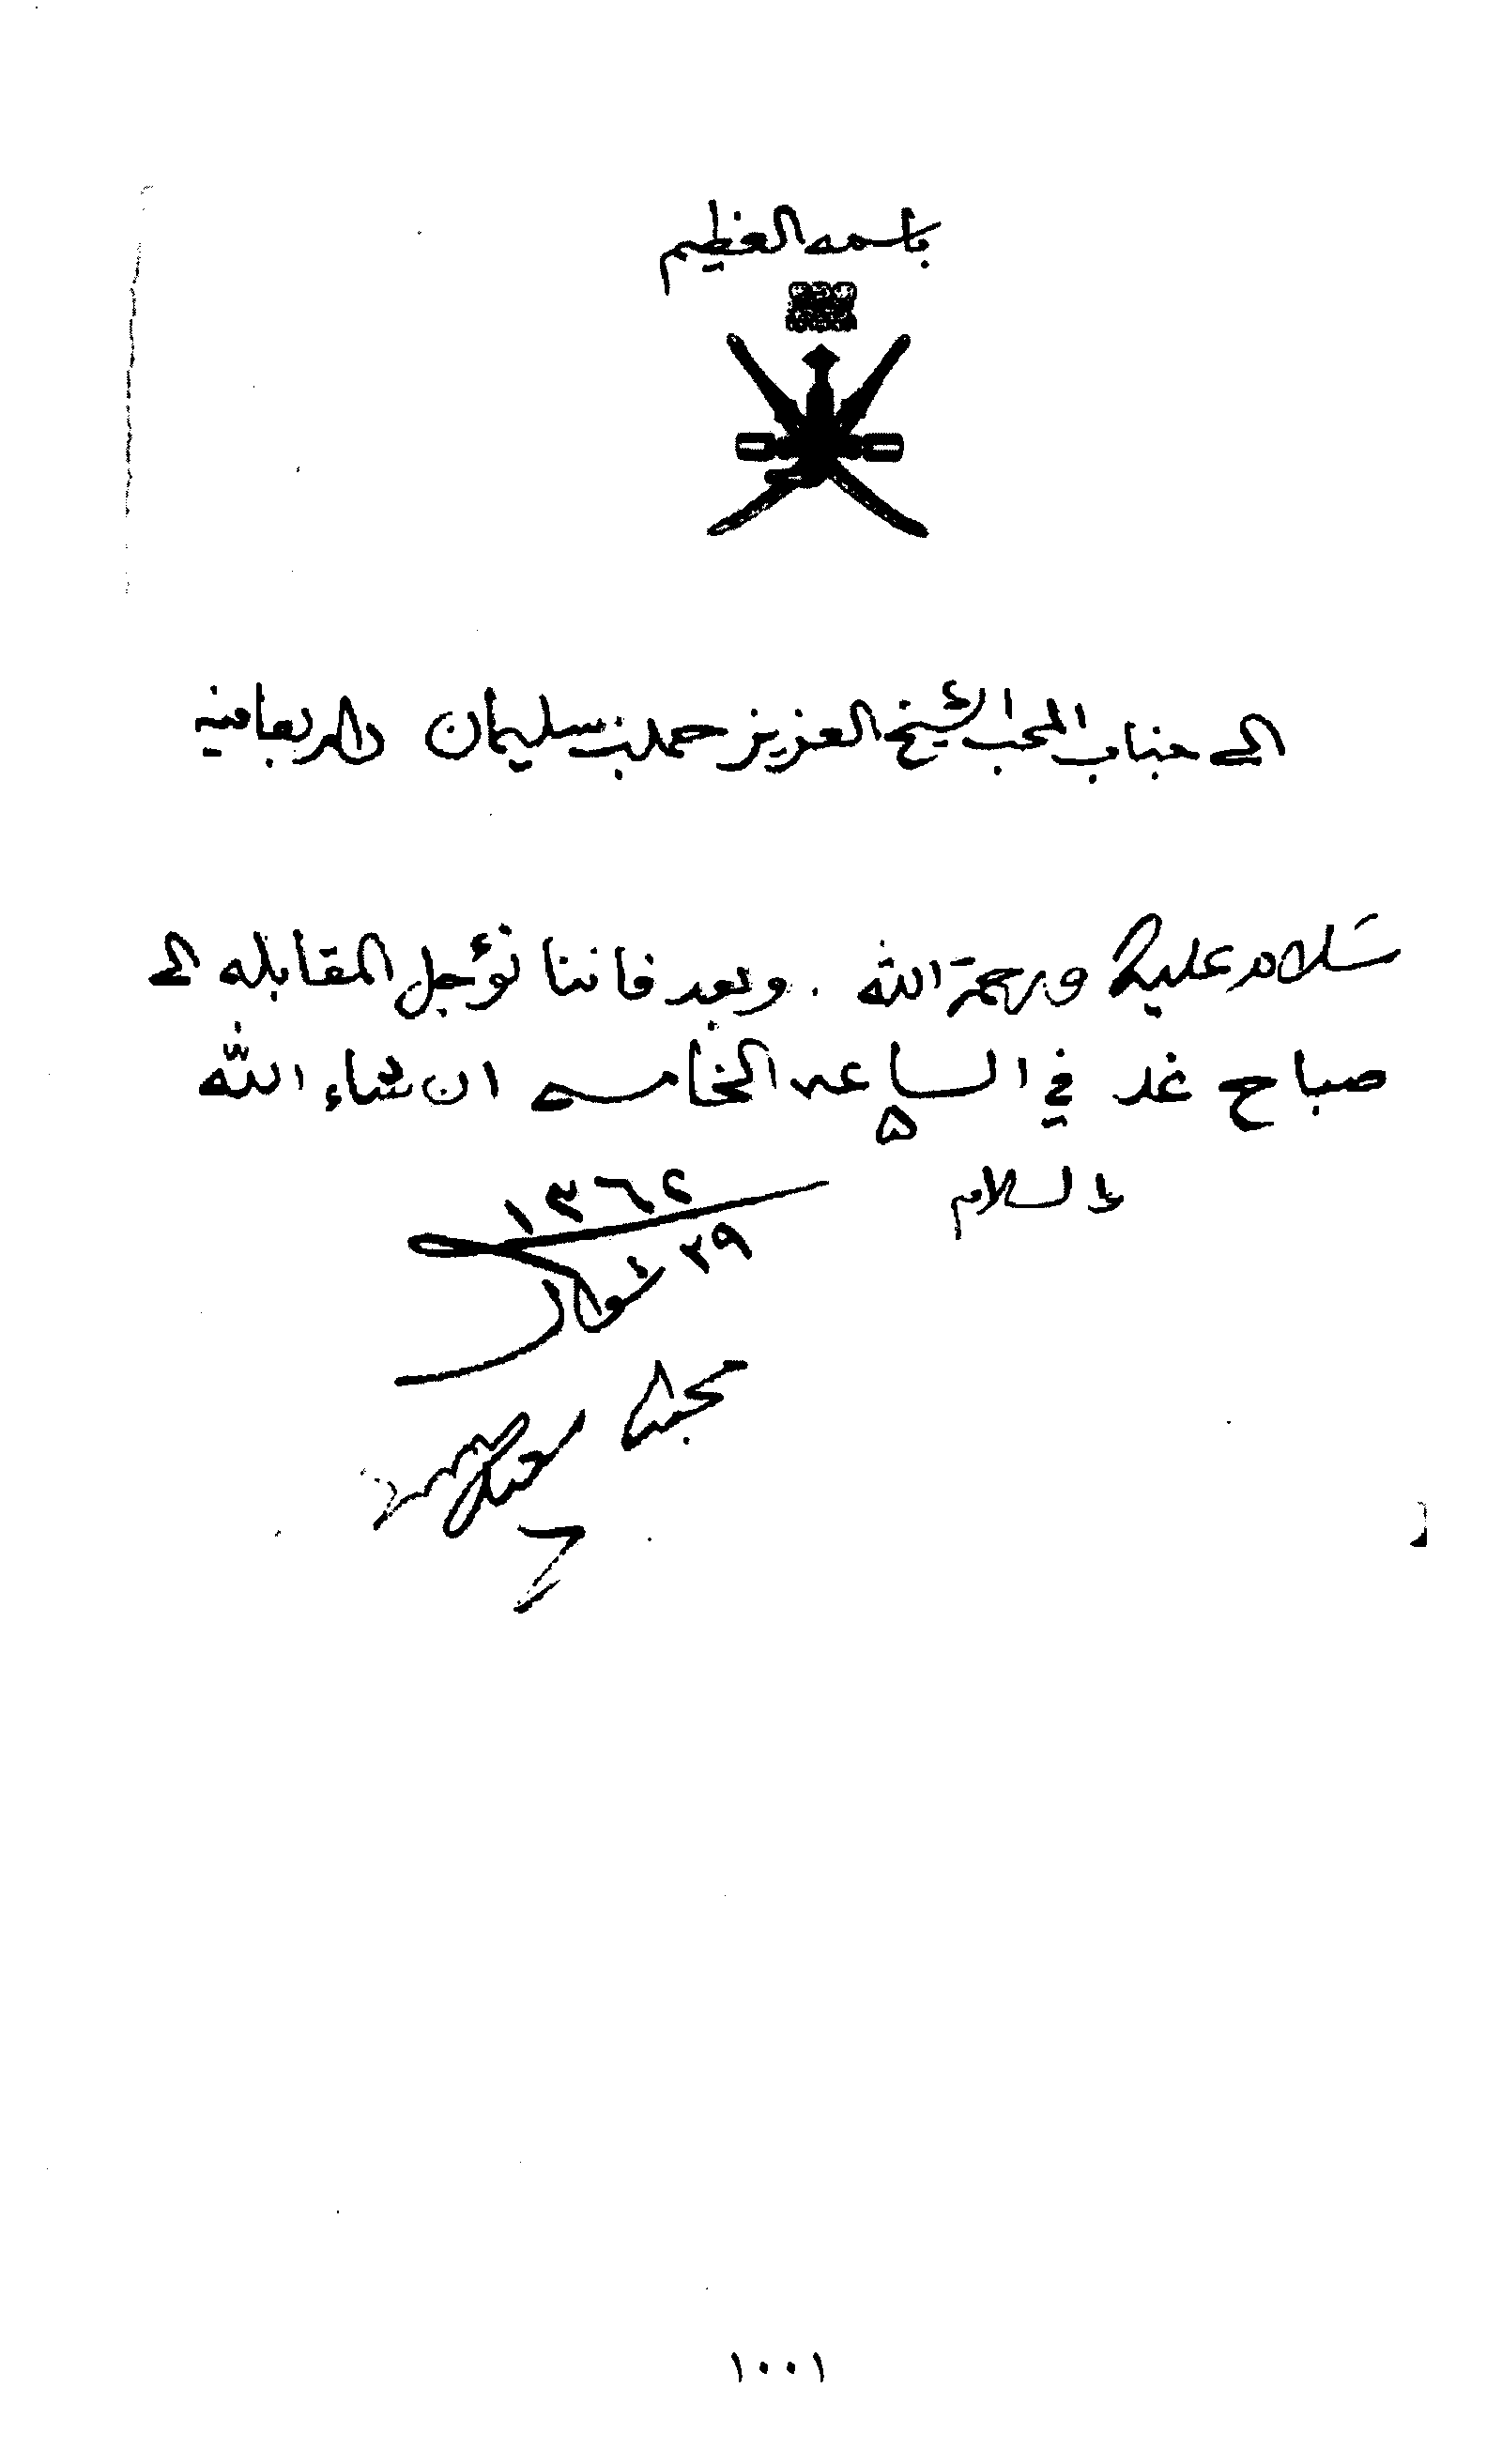 باسمه العظيم
الى جناب المحب الشيخ العزيز حمد بن سليمان دام بعافيه
سلام عليك ورحمة الله . وبعد فاننا نؤجل المقابله الى
صباح غد في الساعه الخامسه ان شاء الله
٥
والسلام
١٣٦٢
٢٩ شوال
محبك سعيد
١٠٠١